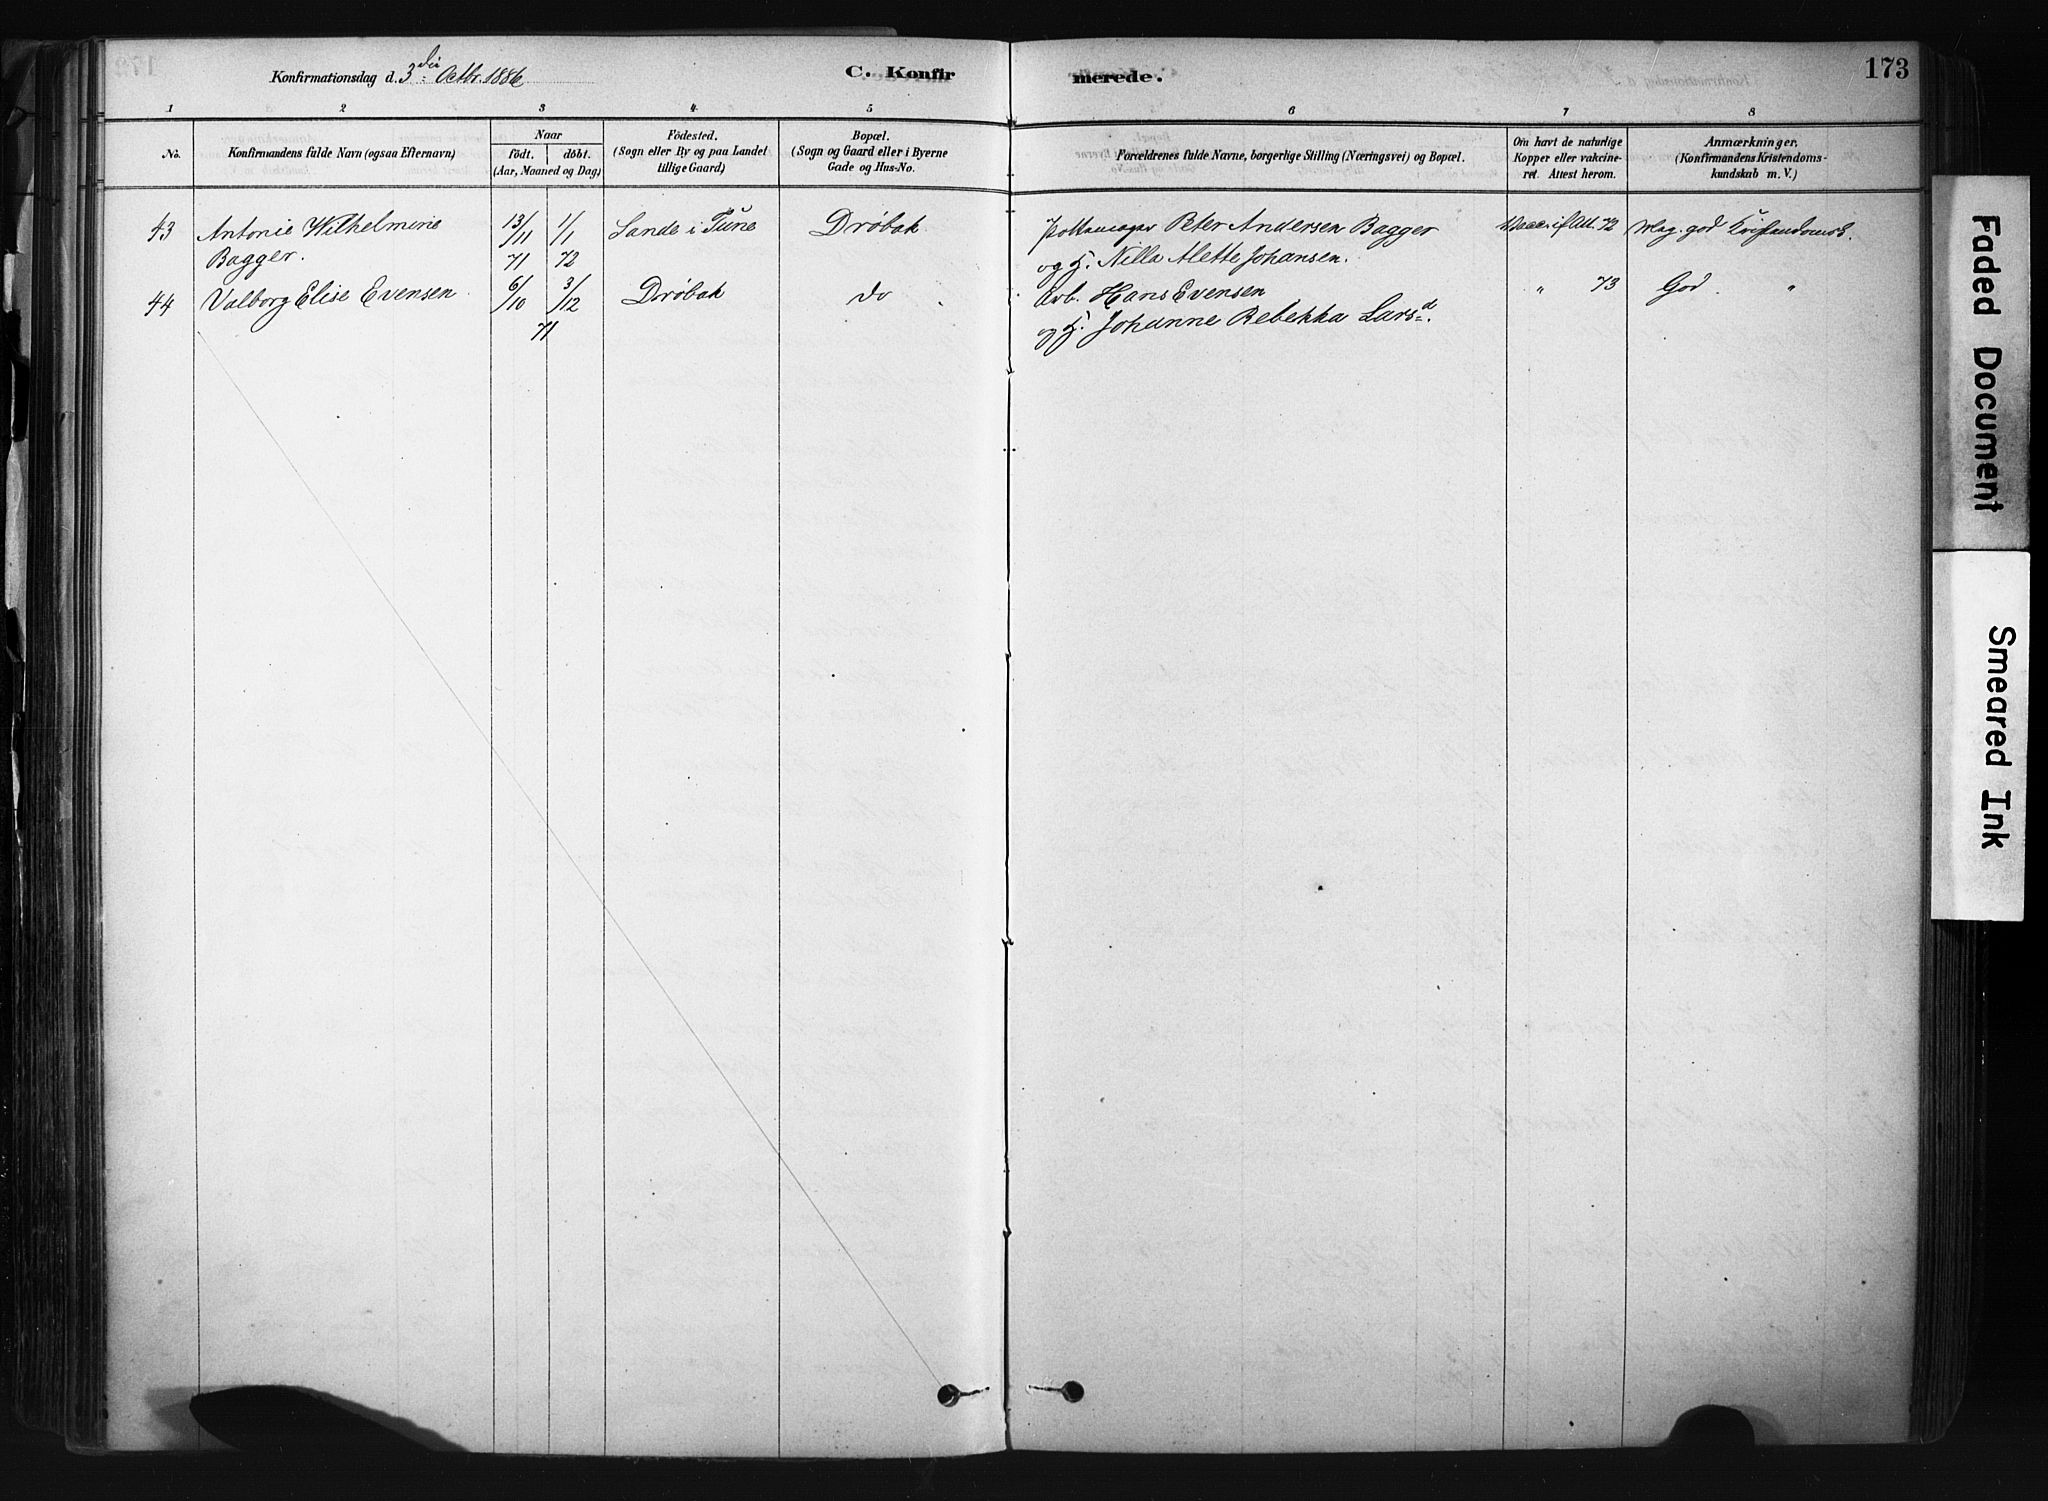 Konfirmationsdag d. 3die Octbr. 1886
C. Konfirmerede.
173
1 2 3 4 5 6 7 8
No.
Konfirmandens fulde Navn (ogsaa Efternavn)
Naar
födt. döbt.
(Aar, Maaned og Dag)
Födested.
(Sogn eller By og paa Landet
tillige Gaard)
Bopæl.
(Sogn og Gaard eller i Byerne
Gade og Hus-No.
Forældrenes fulde Navne, borgerlige Stilling (Næringsvei) og Bopæl.
Om havt de naturlige
Kopper eller vakcine-
ret. Attest herom.
Anmærkninger.
(Konfirmandens Kristendoms-
kundskab m. V.)
43 Antonie Wilhelmine 13/11 1/1 Sande i Tune Drøbak Pottemager Peter Andersen Bagger Vacc. if. Att. 72 Meg. god Kristendomsk.
Bagger. 71 72 og H. Nilla Alette Johansen.
44 Valborg Elise Evensen 6/10 3/12 Drøbak do Arb. Hans Evensen " 73 God "
71 og H. Johanne Rebekka Larsd.
Faded Document
Smeared Ink